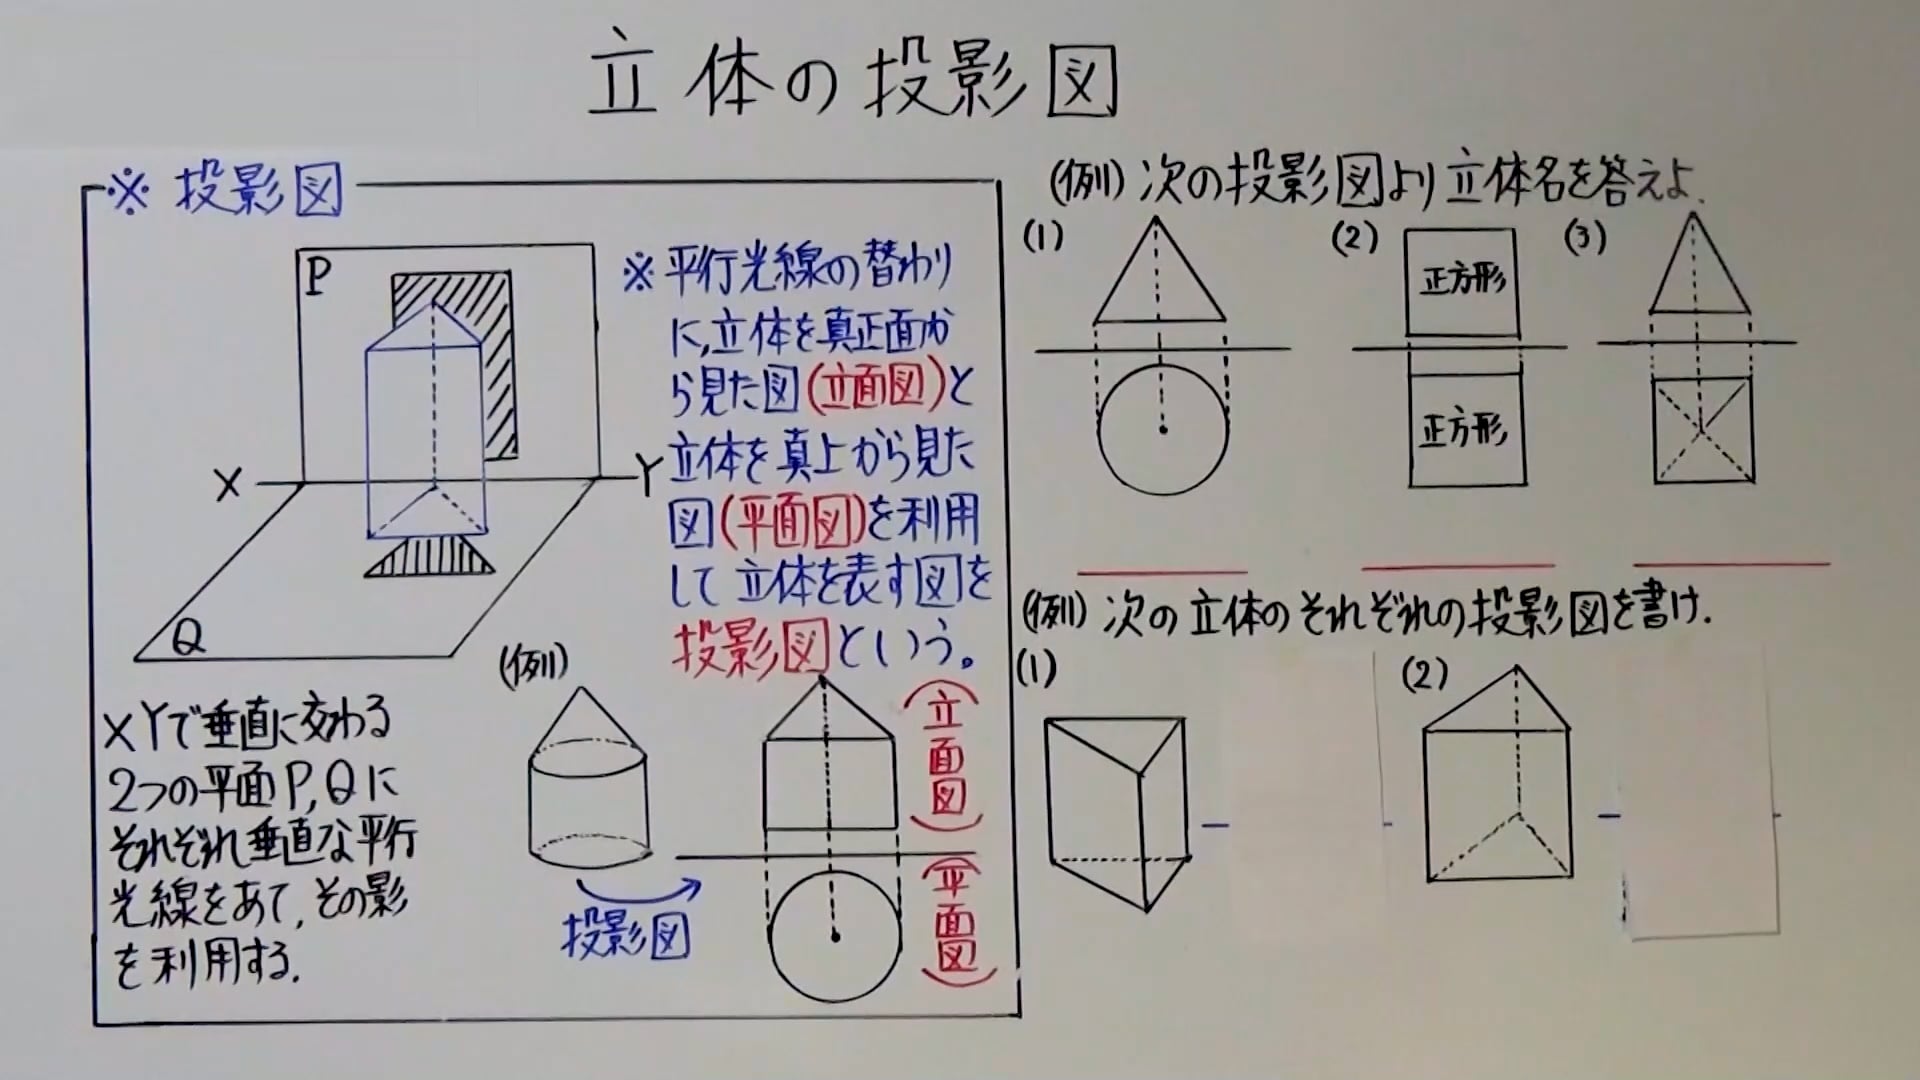 立体の投影図
※ 投影図
P
X
Y
Q
※平行光線の替わり
に,立体を真正面か
ら見た図(立面図)と
立体を真上から見た
図(平面図)を利用
して立体を表す図を
投影図という。
XYで垂直に交わる
2つの平面P,Qに
それぞれ垂直な平行
光線をあて,その影
を利用する.
(例)
投影図
(立面図)
(平面図)
(例)次の投影図より立体名を答えよ.
(1)
(2)
正方形
正方形
(3)
(例)次の立体のそれぞれの投影図を書け.
(1)
(2)